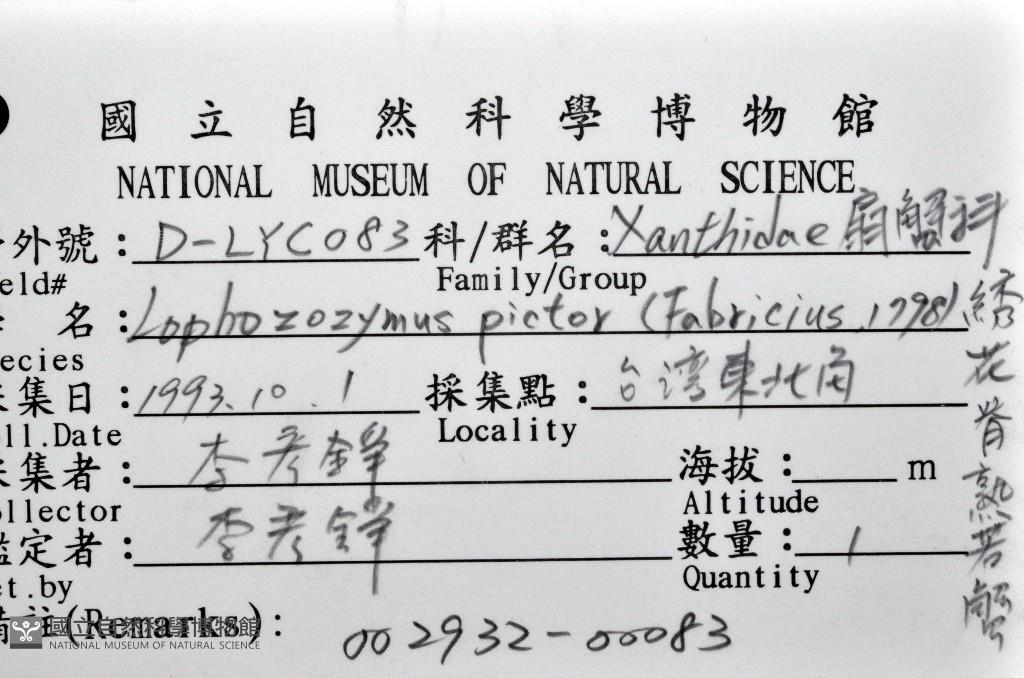 國立自然科學博物館
NATIONAL MUSEUM OF NATURAL SCIENCE
外號：D-LYC083 科/群名：Xanthidae 扇蟹科
eld# Family/Group
名：Lophozozymus pictor (Fabricius, 1798)
ecies
集日：1993.10.1 採集點：台湾東北角
ll.Date Locality
集者：李彥錚 海拔： m
ollector Altitude
定者：李彥錚 數量：1
et.by Quantity
註(Remarks)：002932-00083
綉花脊熟若蟹
國立自然科學博物館
NATIONAL MUSEUM OF NATURAL SCIENCE